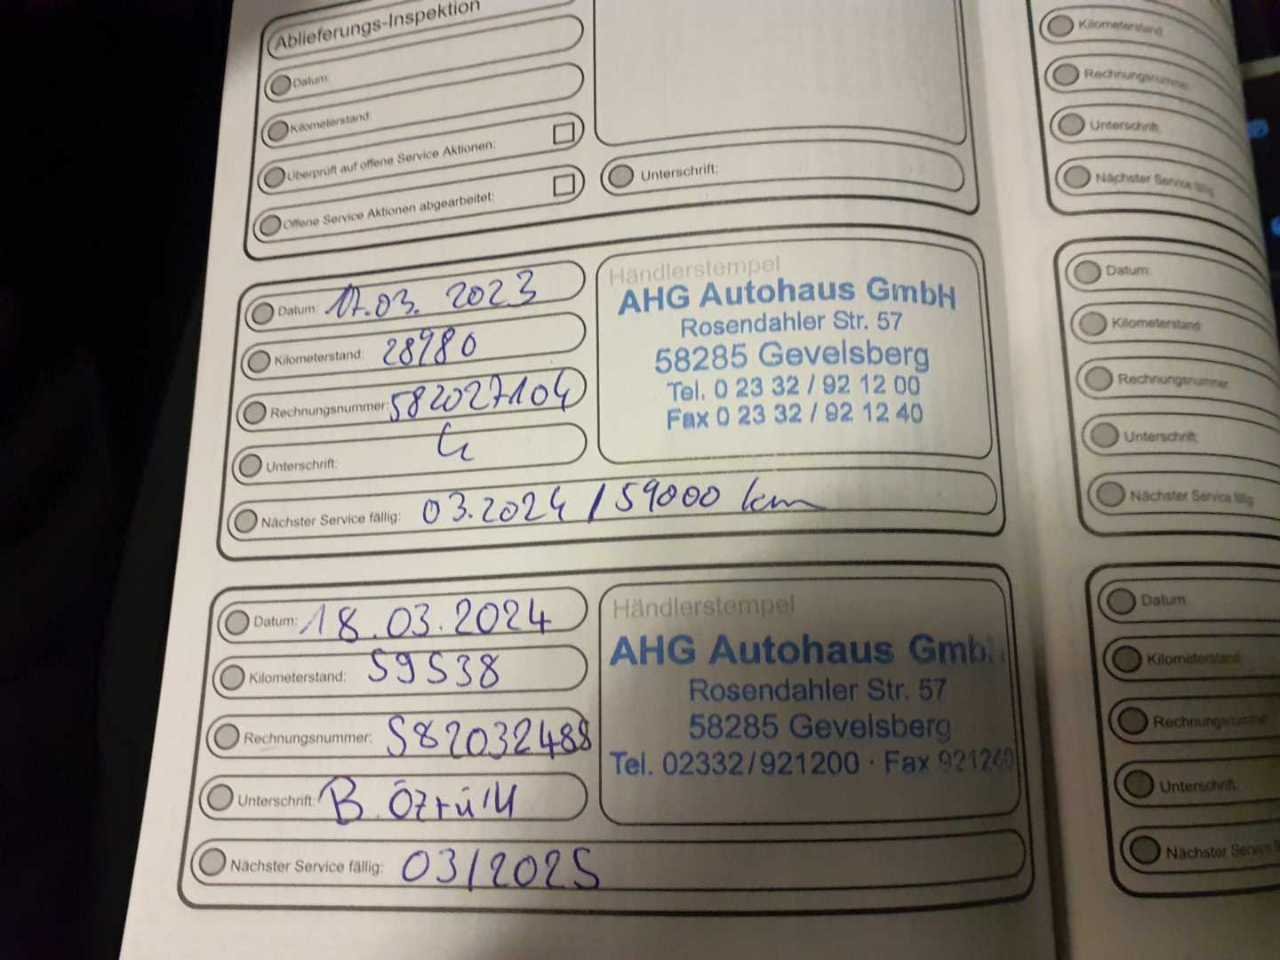 Ablieferungs-Inspektion
Datum:
Kilometerstand:
Überprüft auf offene Service Aktionen:
Offene Service Aktionen abgearbeitet:
Unterschrift:
Datum: 17.03. 2023
Kilometerstand: 28980
Rechnungsnummer: 582027104
Unterschrift:
Nächster Service fällig: 03.2024 / 59000 km
Händlerstempel
AHG Autohaus GmbH
Rosendahler Str. 57
58285 Gevelsberg
Tel. 0 23 32 / 92 12 00
Fax 0 23 32 / 92 12 40
Datum: 18.03.2024
Kilometerstand: 59538
Rechnungsnummer: 582032488
Unterschrift: B.
Nächster Service fällig: 03/2025
Händlerstempel
AHG Autohaus Gmb
Rosendahler Str. 57
58285 Gevelsberg
Tel. 02332/921200 · Fax 921240
Kilometerstand
Rechnungsnummer
Unterschrift:
Nächster Service fällig
Datum:
Kilometerstand
Rechnungsnummer
Unterschrift:
Nächster Service fällig
Datum
Kilometerstand
Rechnungsnummer
Unterschrift:
Nächster Service